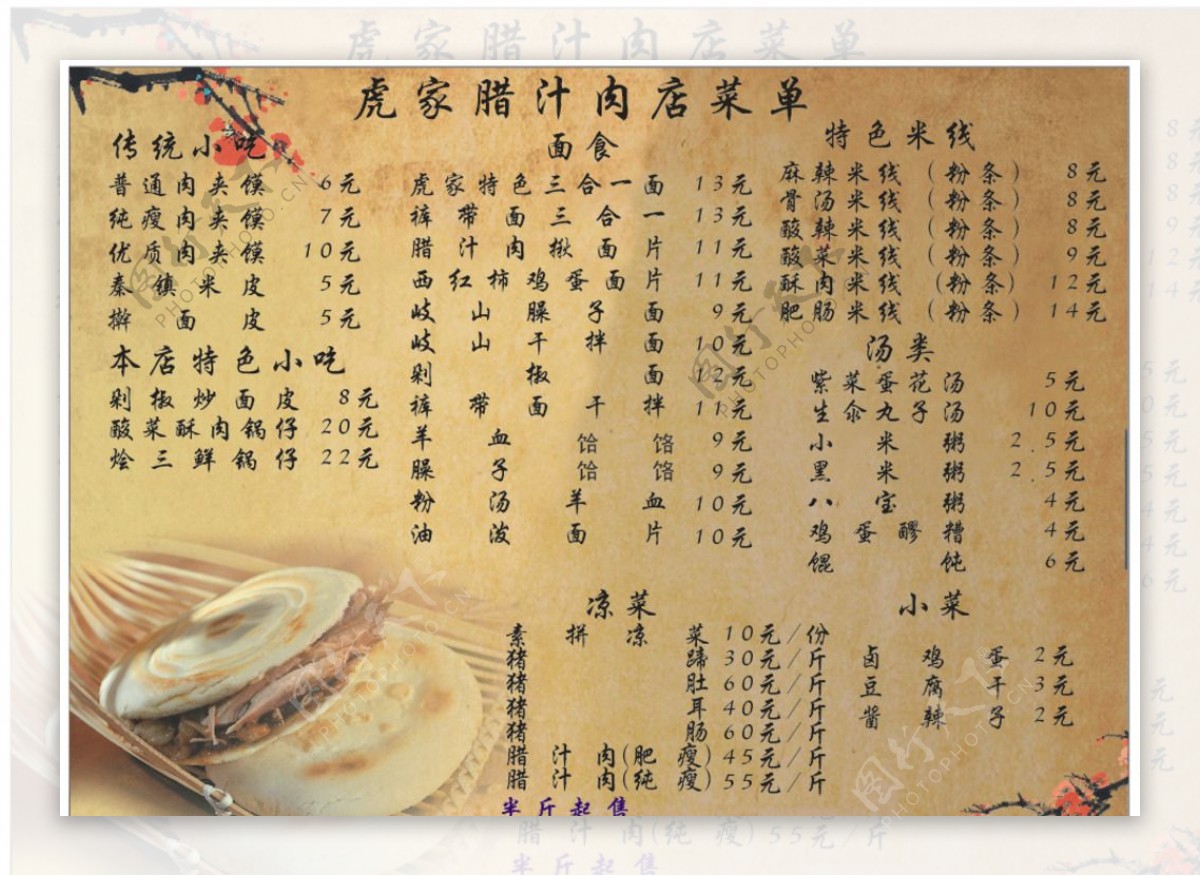 虎家腊汁肉店菜单
传统小吃
普通肉夹馍 6元
纯瘦肉夹馍 7元
优质肉夹馍 10元
秦镇米皮 5元
擀面皮 5元
本店特色小吃
剁椒炒面皮 8元
酸菜酥肉锅仔 20元
烩三鲜锅仔 22元
面食
虎家特色三合一面 13元
裤带面三合一 13元
腊汁肉揪面片 11元
西红柿鸡蛋面片 11元
岐山臊子面 9元
岐山干拌面 10元
剁椒面 12元
裤带面干拌 11元
羊血饸饹 9元
臊子饸饹 9元
粉汤羊血 10元
油泼面片 10元
特色米线
麻辣米线(粉条) 8元
骨汤米线(粉条) 8元
酸辣米线(粉条) 8元
酸菜米线(粉条) 9元
酥肉米线(粉条) 12元
肥肠米线(粉条) 14元
汤类
紫菜蛋花汤 5元
生汆丸子汤 10元
小米粥 2.5元
黑米粥 2.5元
八宝粥 4元
鸡蛋醪糟 4元
馄饨 6元
凉菜
素拼凉菜 10元/份
猪蹄 30元/斤
猪肚 60元/斤
猪耳 40元/斤
猪肠 60元/斤
腊汁肉(肥瘦) 45元/斤
腊汁肉(纯瘦) 55元/斤
半斤起售
小菜
卤鸡蛋 2元
豆腐干 3元
酱辣子 2元